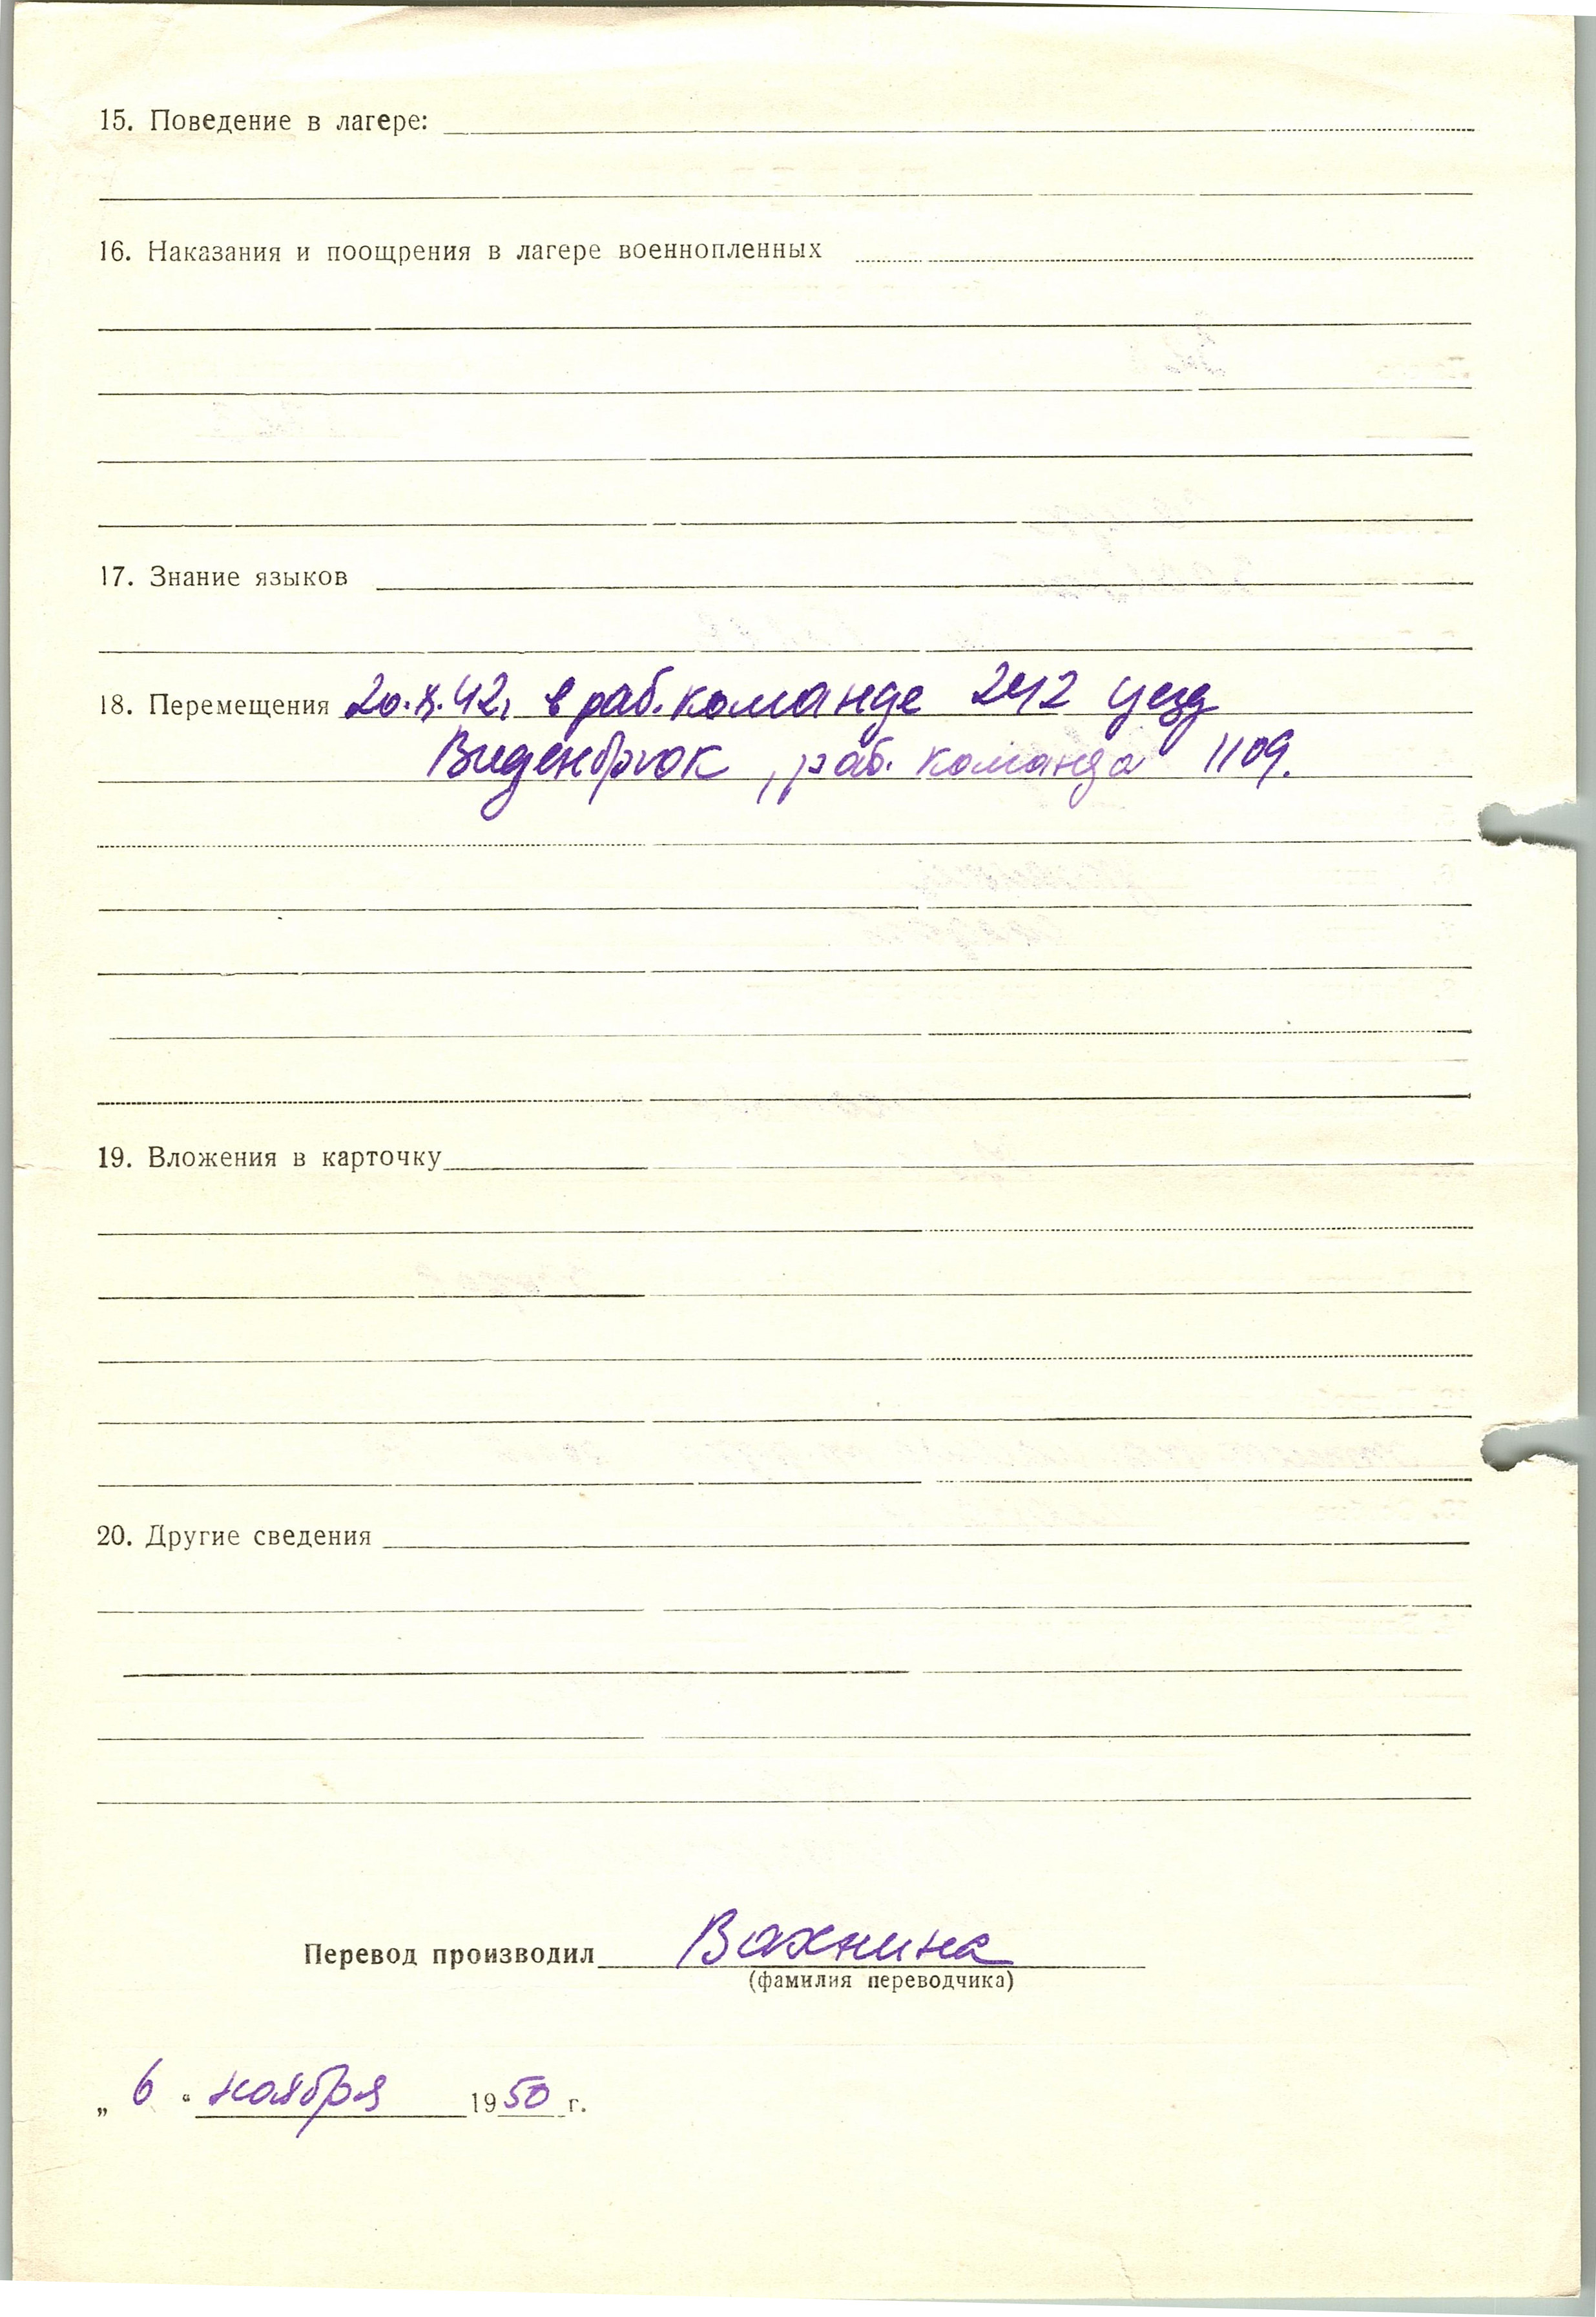 15. Поведение в лагере:
16. Наказания и поощрения в лагере военнопленных
17. Знание языков
18. Перемещения 20.X.42г в раб. команде 242 уезд
Виденбрюк, раб. команда 1109.
19. Вложения в карточку
20. Другие сведения
Перевод производил Вахнина
(фамилия переводчика)
„ 6 “ ноября 1950 г.